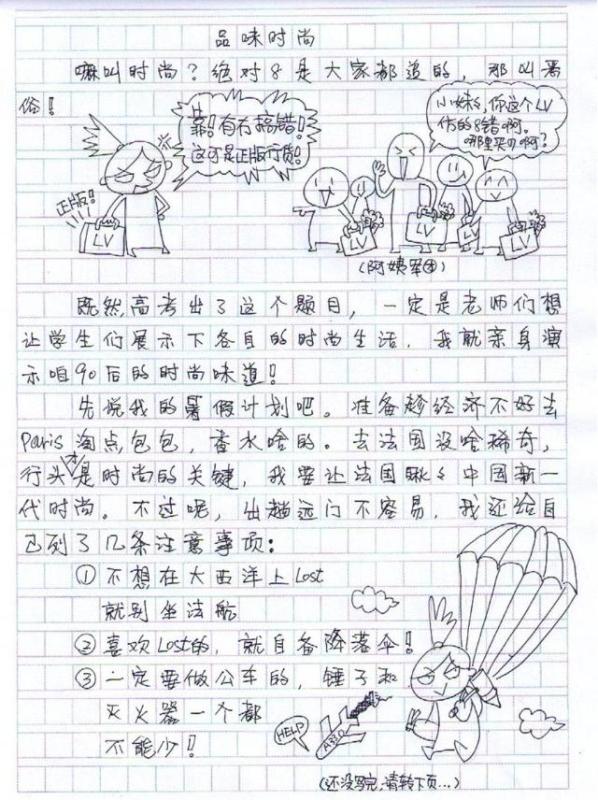 品味时尚
嘛叫时尚？绝对8是大家都道的，那叫恶
俗！
靠！有冇搞错！
这可是正版行货！
小妹妹，你这个LV
仿的8错啊。
哪里买儿啊？
正版！
LV
LV
LV
LV
(阿姨军团)
既然高考出了这个题目，一定是老师们想
让学生们展示下各自的时尚生活，我就亲身演
示咱90后的时尚味道！
先说我的暑假计划吧。准备趁经济不好去
Paris淘点包包，香水啥的。去法国没啥稀奇，
行头才是时尚的关键，我要让法国瞅瞅中国新一
代时尚。不过呢，出趟远门不容易，我还给自
己列了几条注意事项：
① 不想在大西洋上Lost
就别坐法航
② 喜欢Lost的，就自备降落伞！
③ 一定要做公车的，锤子和
灭火器一个都
不能少！
HELP
(还没写完，请转下页…)